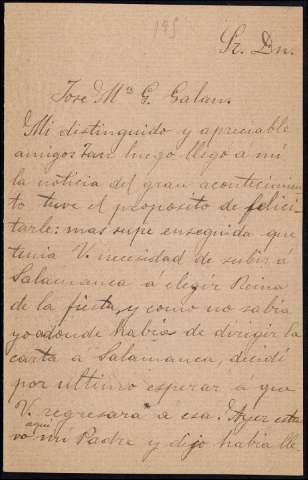 195
Sr. Dn.
Jose Mª G. Galan.
Mi distinguido y apreciable
amigo: Tan luego llego a mi
la noticia del gran acontecimien
to tuve el proposito de felici
tarle: mas supe enseguida que
tenia V. necesidad de subir á
Salamanca á elegir Reina
de la fiesta, y como no sabia
yo adonde habia de dirigir la
carta a Salamanca, decidí
por ultimo esperar a que
V. regresara a esa. Ayer estu
vo aqui mi Padre y dijo habia lle